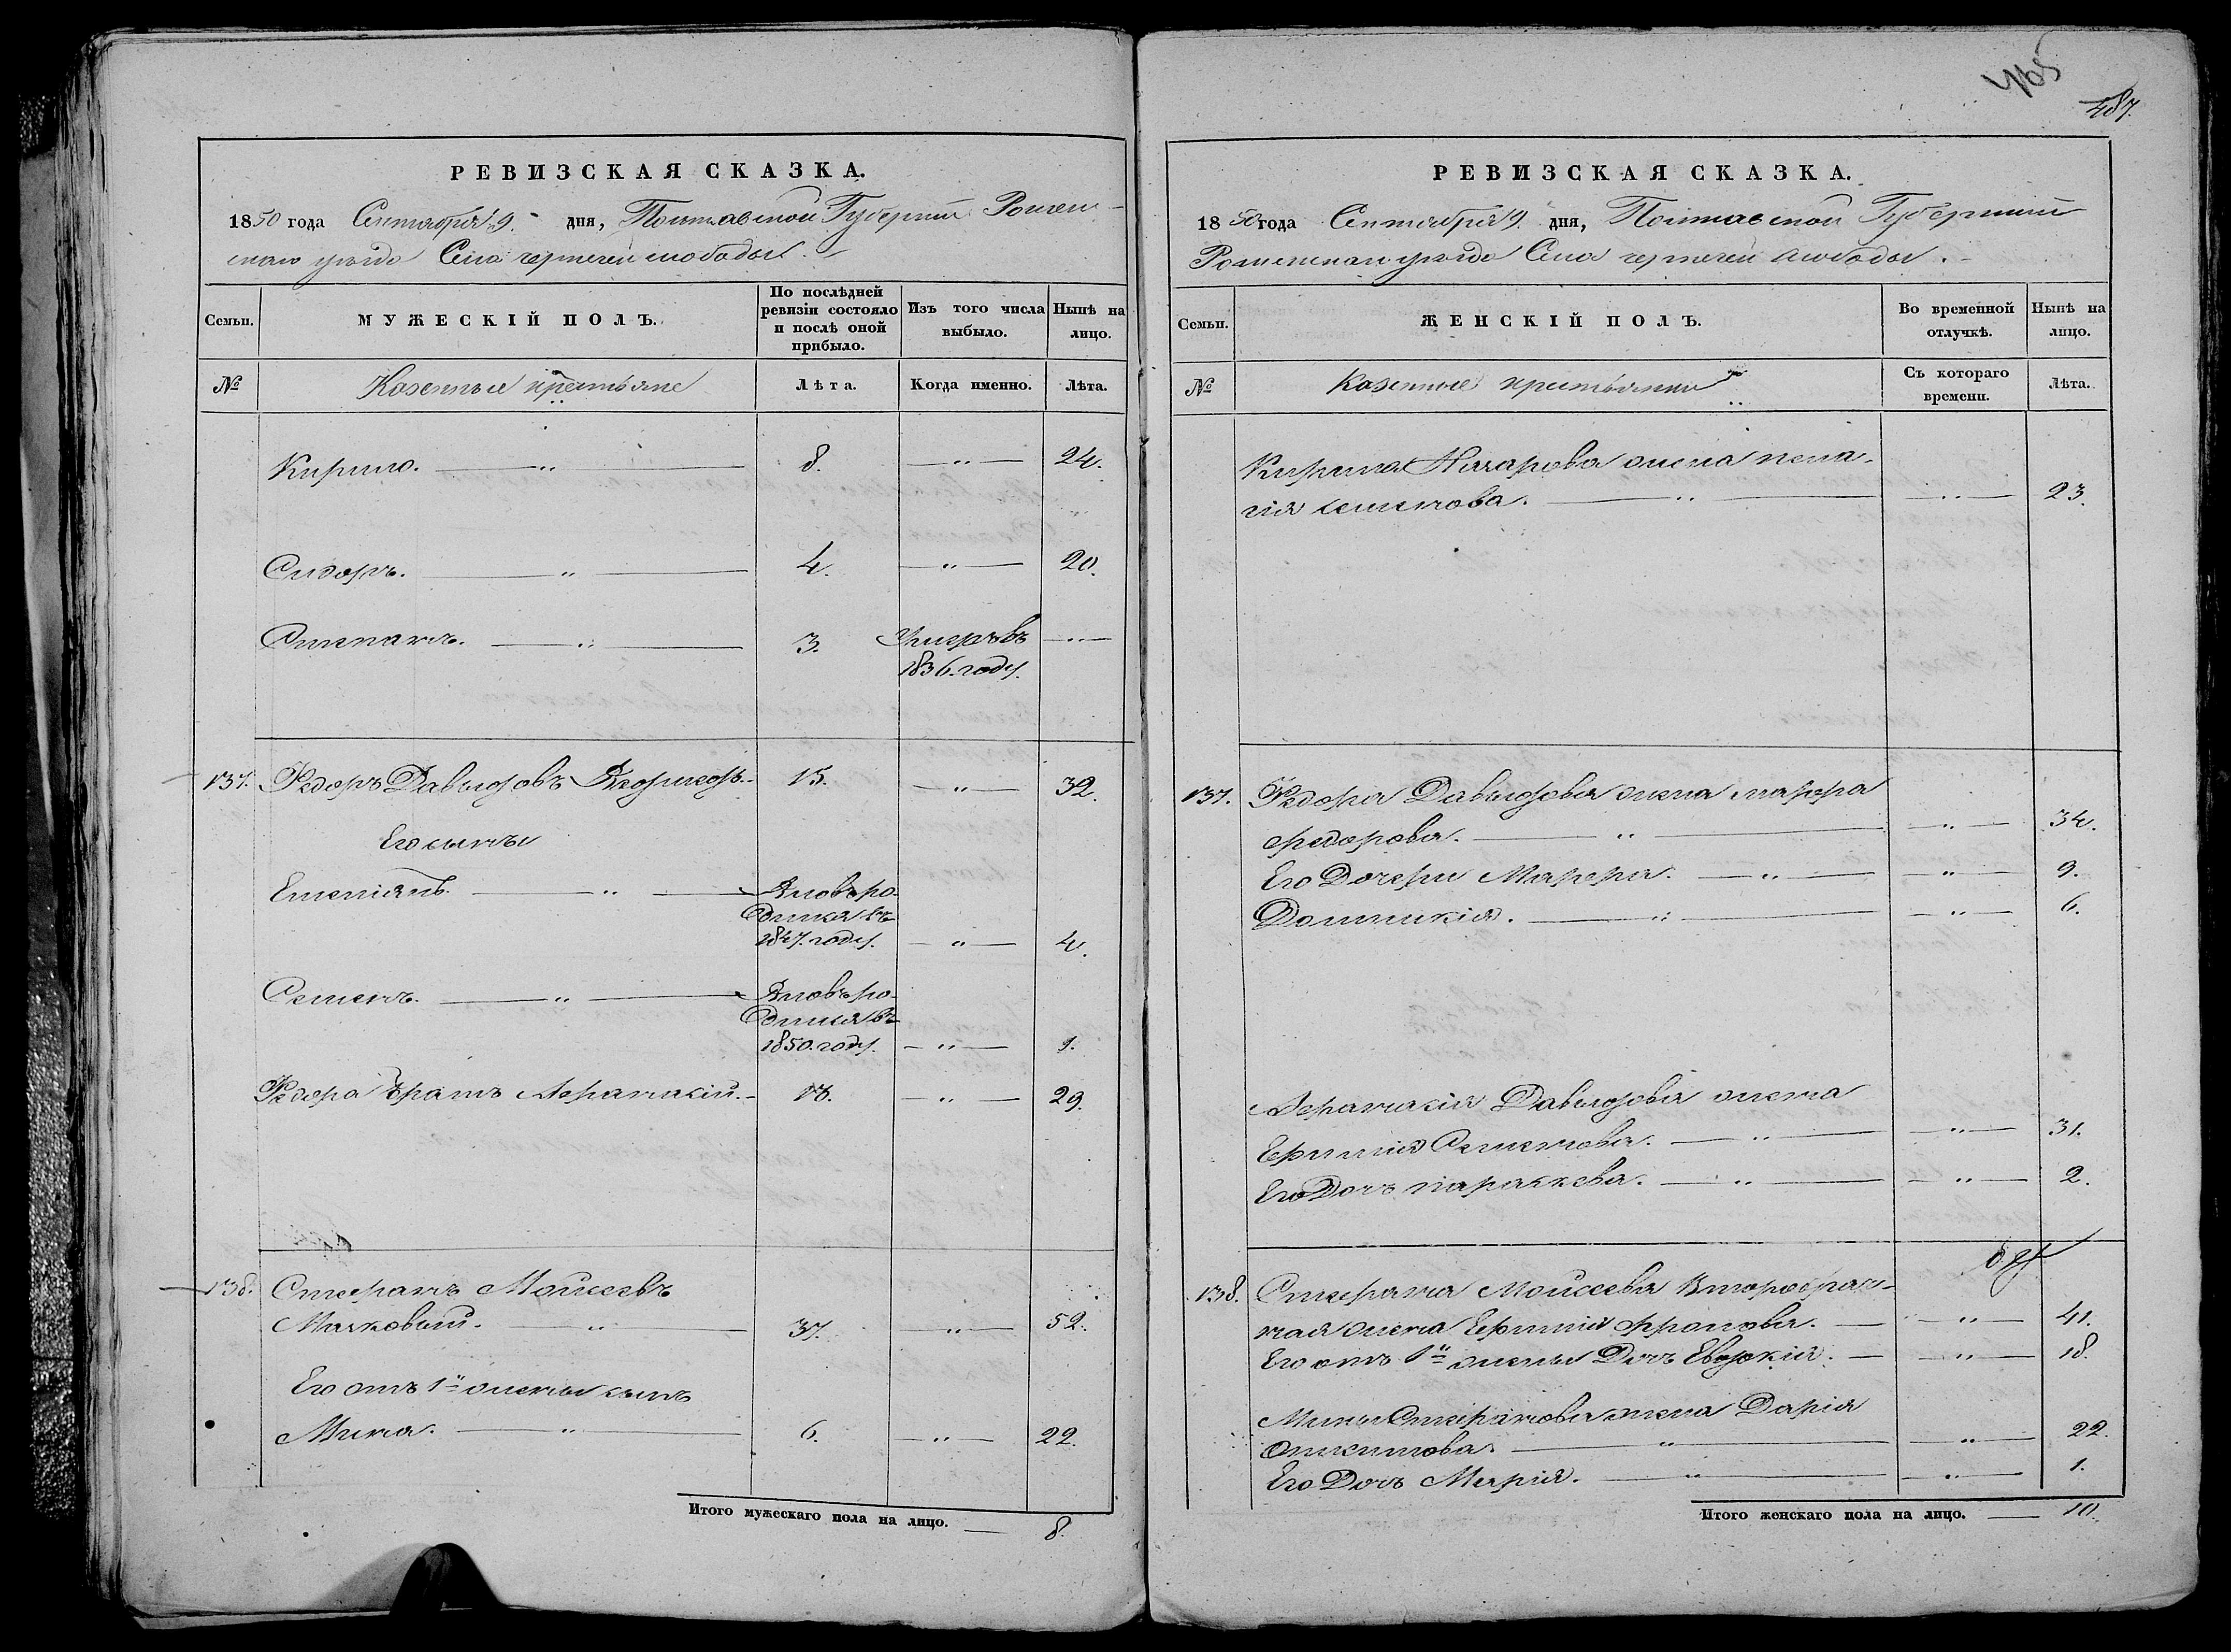 РЕВИЗСКАЯ СКАЗКА.
1850 года Сентября 9. дня, Полтавской Губернии Ромен-
скаго уезда Села чернечей слободы.
Семьи.
МУЖЕСКІЙ ПОЛЪ.
По послѣдней
ревизіи состояло
и послѣ оной
прибыло.
Изъ того числа
выбыло.
Нынѣ на
лицо.
№
Казенные крестьяне
Лѣта.
Когда именно.
Лѣта.
Кирило. — " — 8. — " — 24.
Сидоръ. — " — 4. — " — 20.
Степанъ. — " — 3. Умеръ въ — " —
1836. году.
137. Федоръ Давыдовъ 15. — " — 32.
Его сыны
Емеліянъ. — " — вновь ро-
дился въ
1847. году. — " — 4.
Семенъ. — " — вновь ро-
дился въ
1850. году. — " — 1.
Федора братъ Афанасій. — " — 29.
138. Стефанъ Моисеевъ
— " — 37. — " — 52.
Его отъ 1й жены сынъ
Мина. — " — 6. — " — 22.
Итого мужескаго пола на лицо. — 8.
465
487.
РЕВИЗСКАЯ СКАЗКА.
1850 года Сентября 9. дня, Полтавской Губернии
Роменскаго уезда Села чернечей слободы.
Семьи.
ЖЕНСКІЙ ПОЛЪ.
Во временной
отлучкѣ.
Нынѣ на
лицо.
№
Казенные крестьянки
Съ котораго
времени.
Лѣта.
Кирила Назарова жена пела-
гія семенова. — " — — " — 23.
137. Федора Давыдова жена марфа
федорова. — " — — " — 34.
Его Дочери Марфа. — " — — " — 9.
Домникія. — " — — " — 6.
Афанасія Давыдова жена
Ефимія Семенова. — " — — " — 31.
Его Дочъ параскева. — " — — " — 2.
138. Стефана Моисеева Второбрач-
ная жена Ефимія — — " — 41.
Его отъ 1й жены Дочъ Евдокія. — — " — 18.
Мины Стефанова жена Дарія
Онисимова. — " — — " — 22.
Его Дочъ Марія. — " — — " — 1.
Итого женскаго пола на лицо. — 10.